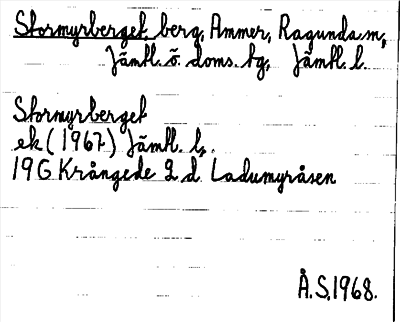 Stormyrberget, berg, Ammer, Ragunda sn,
Jämtl. ö. doms. tg, Jämtl. l.
Stormyrberget
ek (1967) Jämtl. l.
19G Krångede 2 d Ladumyråsen
Å.S. 1968.